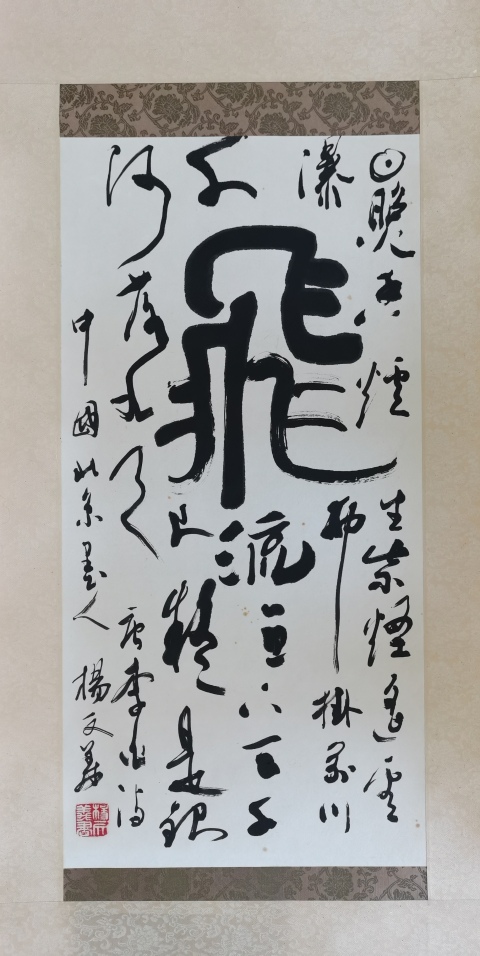 日照香爐生紫煙遙看
瀑布掛前川
飛流直下三千
尺疑是銀
河落九天
唐李白詩
中國北京墨人楊文義